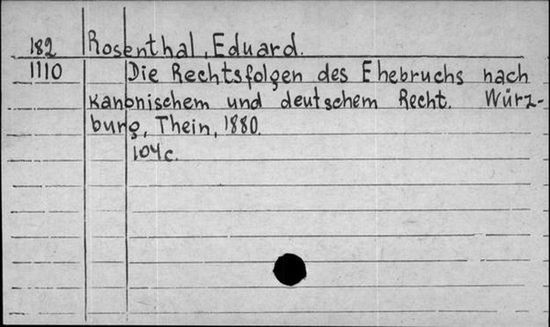 182 Rosenthal, Eduard.
1110 Die Rechtsfolgen des Ehebruchs nach
kanonischem und deutschem Recht. Würz-
burg, Thein, 1880.
104c.